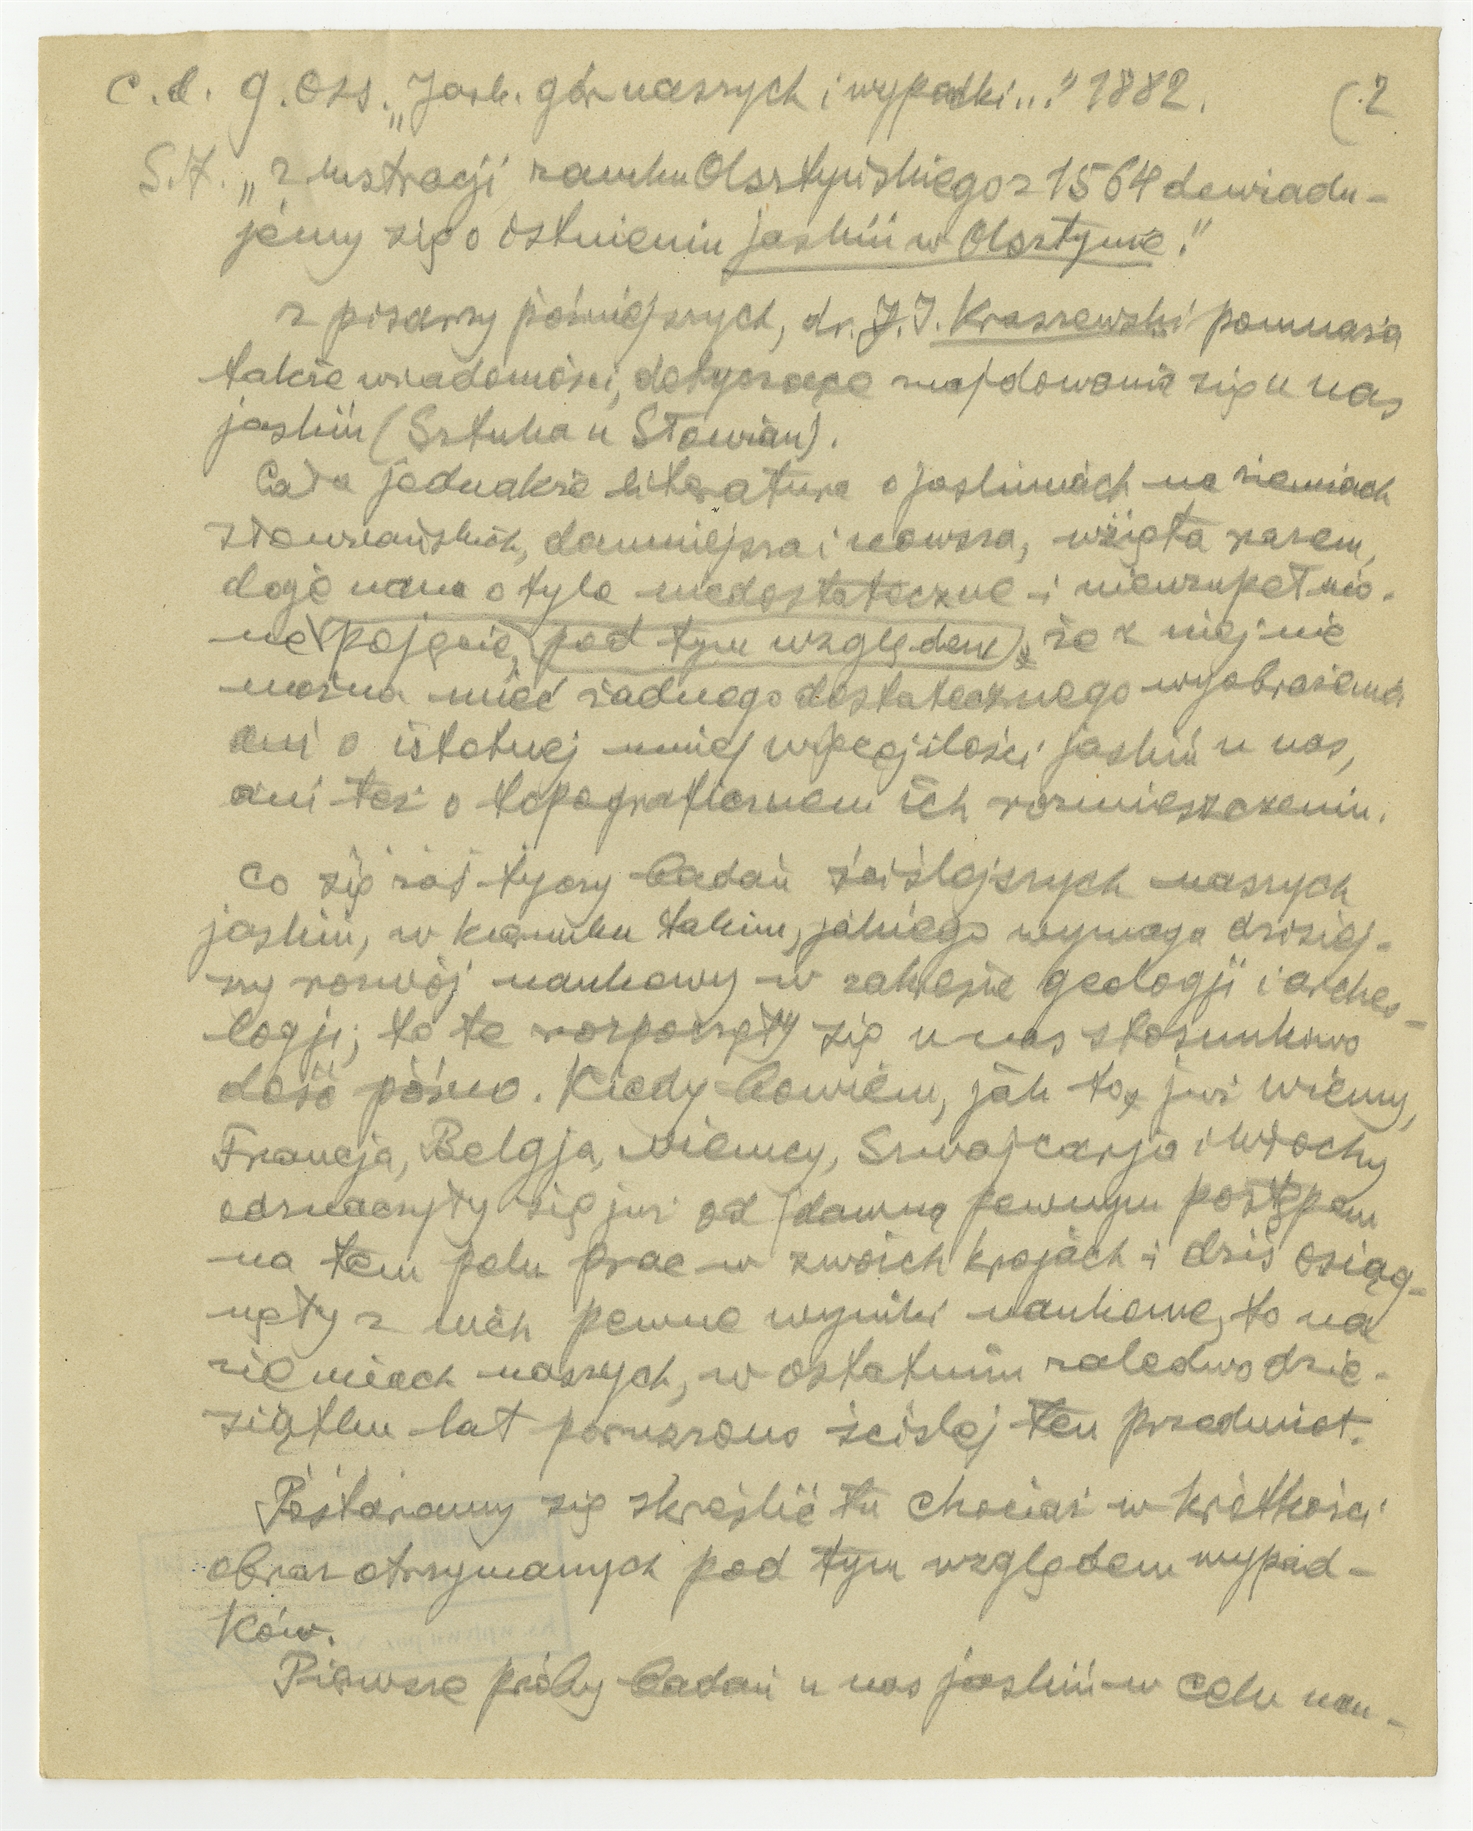 c.d. G. Oss. „Jask. gór naszych i wypadki..." 1882. (2
S.7. „z lustracji zamku Olsztyńskiego z 1564 dowiadu-
jemy się o istnieniu jaskiń w Olsztynie."
z pisarzy późniejszych, dr. J.I. Kraszewski pomnaża
także wiadomości, dotyczące znajdowania się u nas
jaskiń (Sztuka u Słowian).
Cała jednakże literatura o jaskiniach na ziemiach
słowiańskich, dawniejsza i nowsza, wzięta razem,
daje nam o tyle niedostateczne i niewzupełnio-
ne pojęcie, pod tym względem, że z niej nie
można mieć żadnego dostatecznego wyobrażenia
ani o istotnej mniej więcej ilości jaskiń u nas,
ani też o topograficznem ich rozmieszczeniu.
Co się zaś tyczy badań ściślejszych naszych
jaskiń, w kierunku takim, jakiego wymaga dzisiej-
szy rozwój naukowy w zakresie geologji i archeo-
logji; to te rozpoczęły się u nas stosunkowo
dość późno. Kiedy bowiem, jak to już wiemy,
Francja, Belgja, Niemcy, Szwajcarja i Włochy
odznaczyły się już od dawna pewnym postępem
na tem polu prac w swoich krajach i dziś osiąg-
nęły z nich pewne wyniki naukowe, to na
ziemiach naszych, w ostatnim zaledwo dzie-
siątku lat poruszono ściślej ten przedmiot.
Postaramy się skreślić tu chociaż w krótkości
obraz otrzymanych pod tym względem wypad-
ków.
Pierwsze próby badań u nas jaskiń w celu nau-